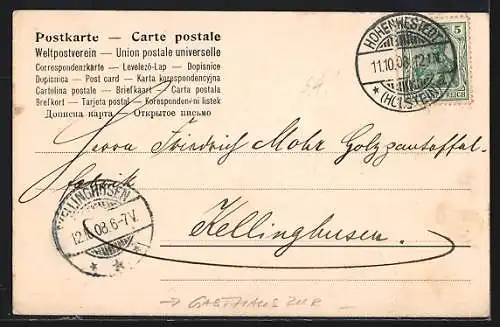 Postkarte — Carte postale
Weltpostverein — Union postale universelle
Correspondenzkarte — Levelező-Lap — Dopisnice
Dopisnica — Post card — Karta korespondencyjna
Cartolina postale — Briefkaart — Carta postala
Brefkort — Tarjeta postal — Korespondenčni listek
Дописна карта — Открытое письмо
HOHENWESTEDT
11.10.08.12-1V.
* (HOLSTEIN) *
5
REICH
Herrn Friedrich Mohr Holzpantoffel-
fabrik
Kellinghusen.
KELLINGHUSEN
12.10.08.6-7V.
* *
→ GASTHAUS ZUR